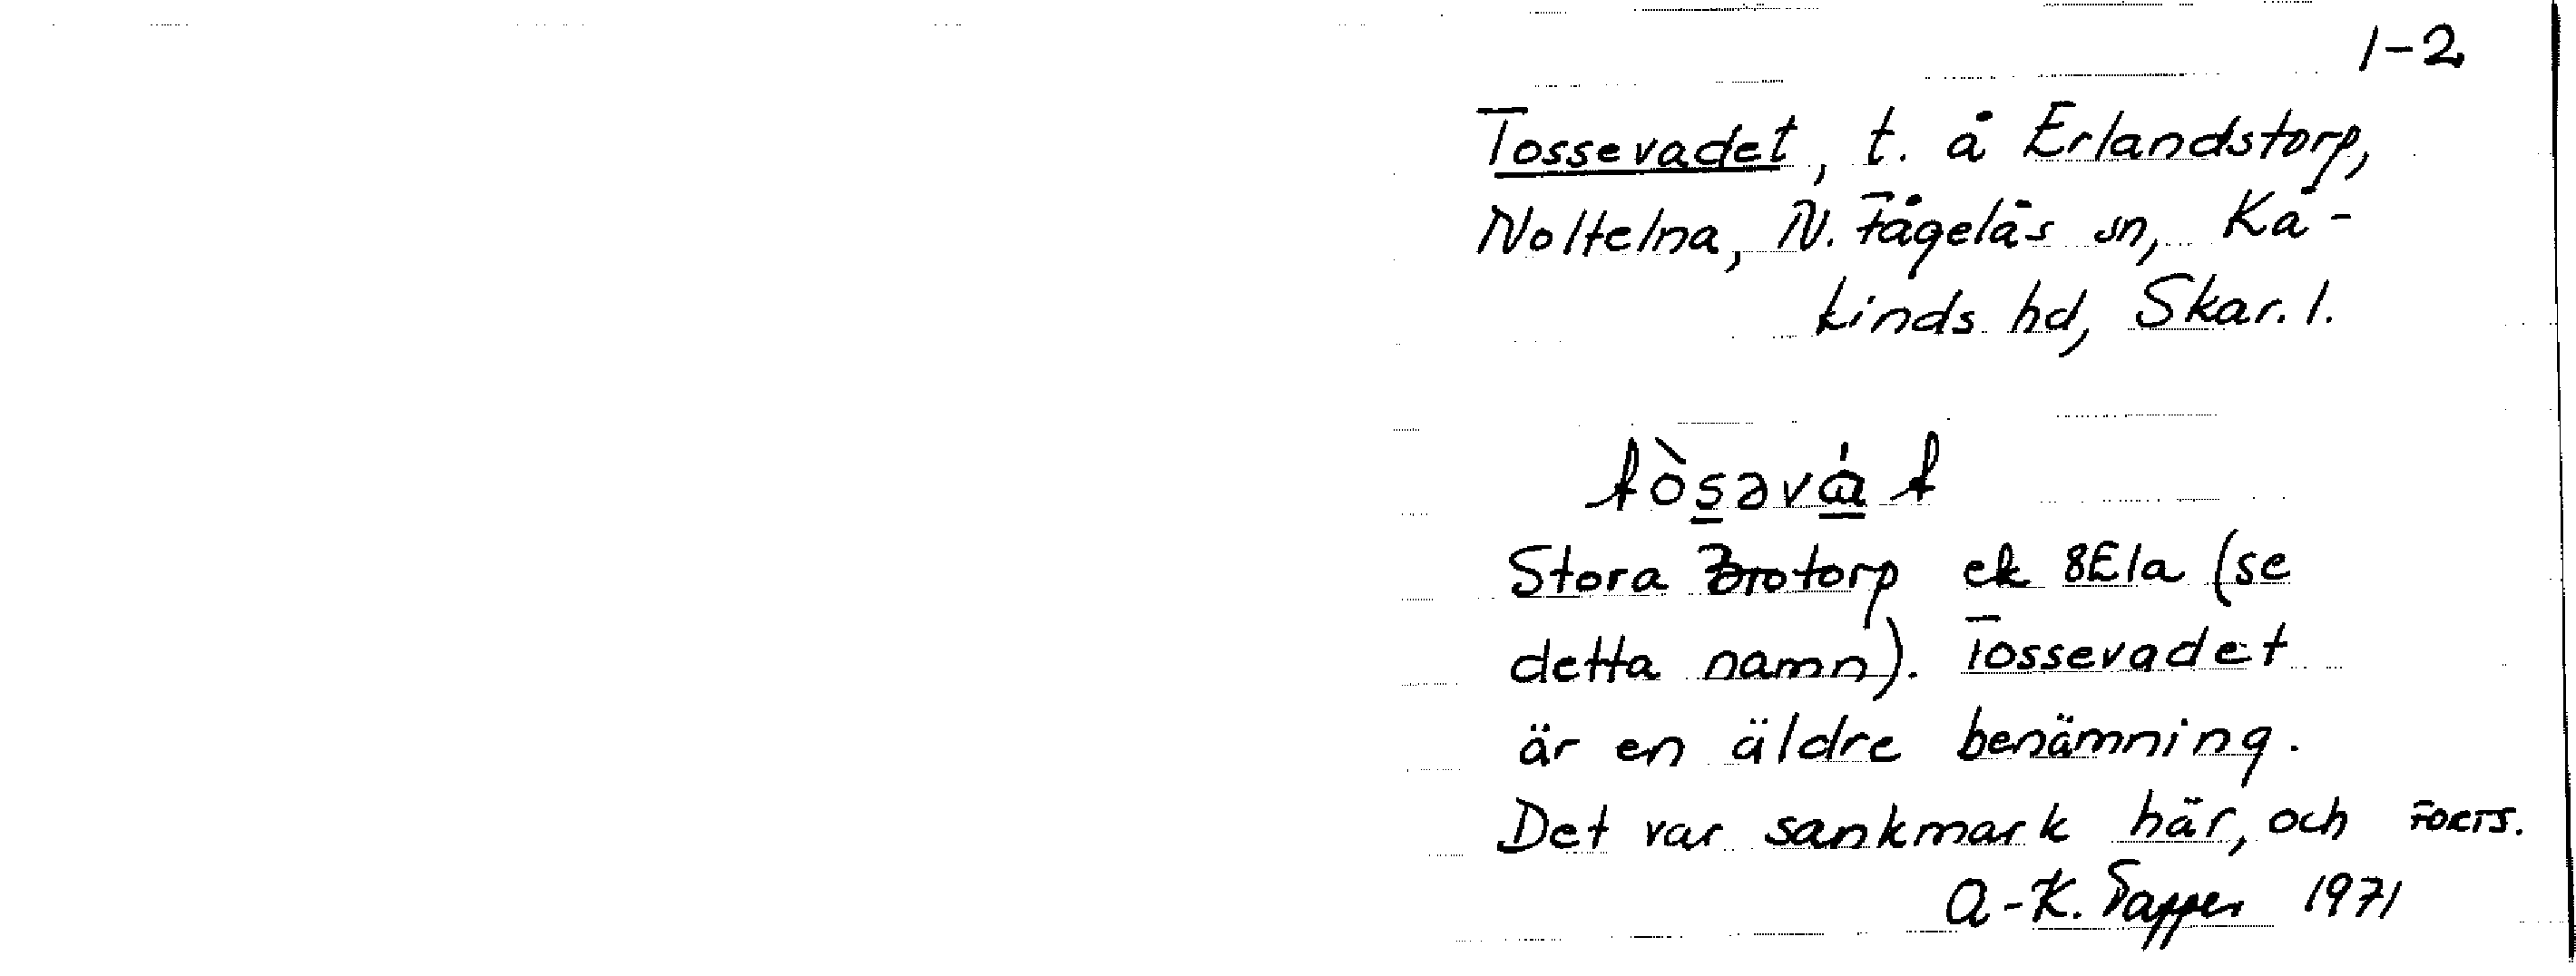 1-2
Tossevadet, t. å Erlandstorp,
Noltelna, N. Fågelås sn, Kå-
kinds hd, Skar. l.
tòsəvát
Stora Brotorp ek 8E1a (se
detta namn). Tossevadet
är en äldre benämning.
Det var sankmark här, och FORTS.
A-K. Tapper 1971